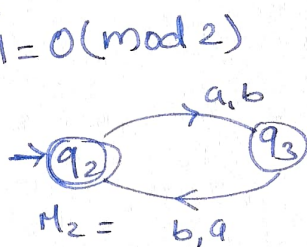 = 0 (mod 2)
a, b
→ q2 q3
M2 = b, a